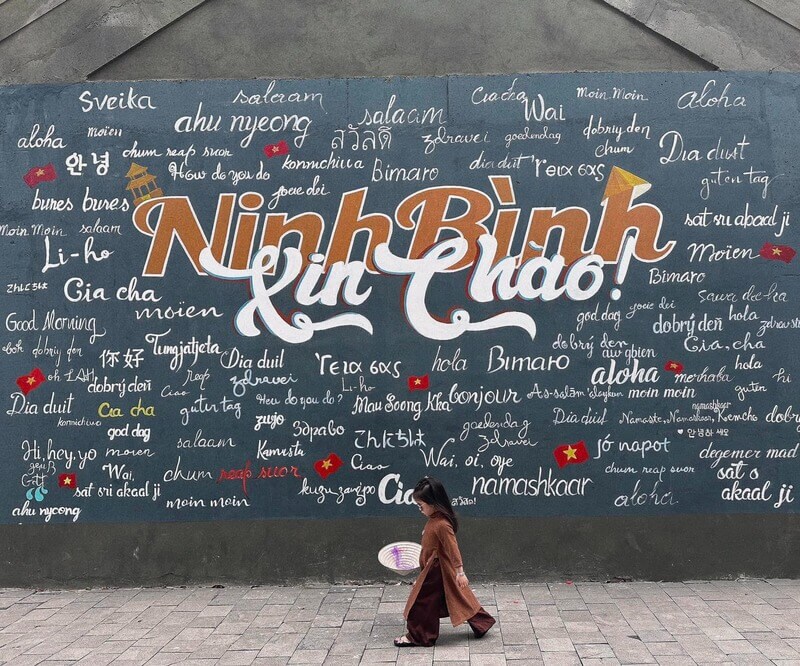 Sveika
salaam
salaam
Ciacha
Wai
Moin Moin
Aloha
aloha
moïen
ahu nyeong
สวัสดี
zdravei
goedendag
dobriy den
안녕
chum reap suor
konnichiwa
dia duit
Γεια σας
chum
Dia duit
How do you do
Bimaro
guten tag
bures bures
joeie dei
sat sru abaad ji
Ninh Bình
Xin Chào!
Moin Moin
salaam
Li-ho
Moïen
Bimaro
こんにちは
Cia cha
moïen
god dag
yoeie dei
Sawa dee-ha
Good Morning
dobrý deň
hola
zdravstv
dobriy den
你好
Tungjatjeta
Dia duil
Γεια σας
hola
Bimaro
dobrý den
Cia.cha
dobrý deñ
Ciao
reap
zdravei
Li-ho
aloha
merhaba
hola
hi
Dia duit
Cia cha
guten tag
How do you do?
Mau Soong Kha
bonjour
As-salām
moin moin
guten
konnichiwa
god dag
zujo
Зораво
goedendag
Dia duit
Namaste, Namaskaar, Kemcho
namaskaar
dobrý
Hi, hey, yo
moien
salaam
Kamusta
こんにちは
zdravei
안녕하세요
Gott
Wai,
chum reap suor
Ciao
Wai, oi, oye
jó napot
degemer mad
sat sri akaal ji
kuzu zangpo
Cia
namashkaar
chum reap suor
sat s
akaal ji
ahu nyeong
moin moin
aloha